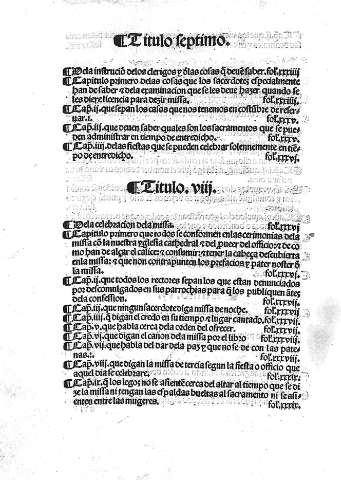 ¶Titulo septimo.
¶Dela instrució delos clerigos y dlas cosas q̄ deuē saber. fol.xxxiiij
¶Capitulo primero delas cosas que los sacerdotes especialmente
han de saber ⁊ dela examinacion que se les deue hazer quando se
les diere licencia para dezir missa. fol.xxxiiij.
¶Cap.ij. que sepan los casos que nos tenemos en costūbre de reser
uar. fol.xxxv.
¶Cap.iij. que deuen saber quales son los sacramentos que se pue
den administrar en tiempo de entredicho. fol.xxxv.
¶Cap.iiij. delas fiestas que se pueden celebrar solennemente en tiē
po de entredicho. fol.xxxvj.
¶Titulo. viij.
¶Dela celebracion dela missa. fol.xxxvj
¶Capitulo primero que todos se conformen enlas cerimonias dela
missa cō la nuestra yglesia cathedral ⁊ del officio: ⁊ de co
mo han de alçar el calice: ⁊ consumir: ⁊ tener la cabeça descubierta
enla missa: ⁊ que non contrapunten los prefacios y pater noster ē
la missa. fol.xxxvj.
¶Cap.ij. que todos los rectores sepan los que estan denunciados
por descomulgados en sus parrochias para q̄ los publiquen ātes
dela confession. fol.xxxvij.
¶Cap.iij. que ningun sacerdote diga missa de noche. fol.xxxvij.
¶Cap.iiij. q̄ digan el credo en su tiempo ⁊ lugar cantado. fol.xxxvij.
¶Cap.v. que habla cerca dela orden del ofrecer. fol.xxxvij.
¶Cap.vj. que digan el canon dela missa por el libro fol.xxxviij.
¶Cap.vij. que habla del dar dela paz y que no se de con las pate
nas. fol.xxxviij.
¶Cap.viij. que digan la missa de tercia segun la fiesta o officio que
aquel dia se celebrare. fol.xxxix.
¶Cap.ix. q̄ los legos no se assienten cerca del altar al tiempo que se di
ze la missa ni tengan las espaldas bueltas al sacramento ni se assi
enten entre las mugeres. fol.xxxix.